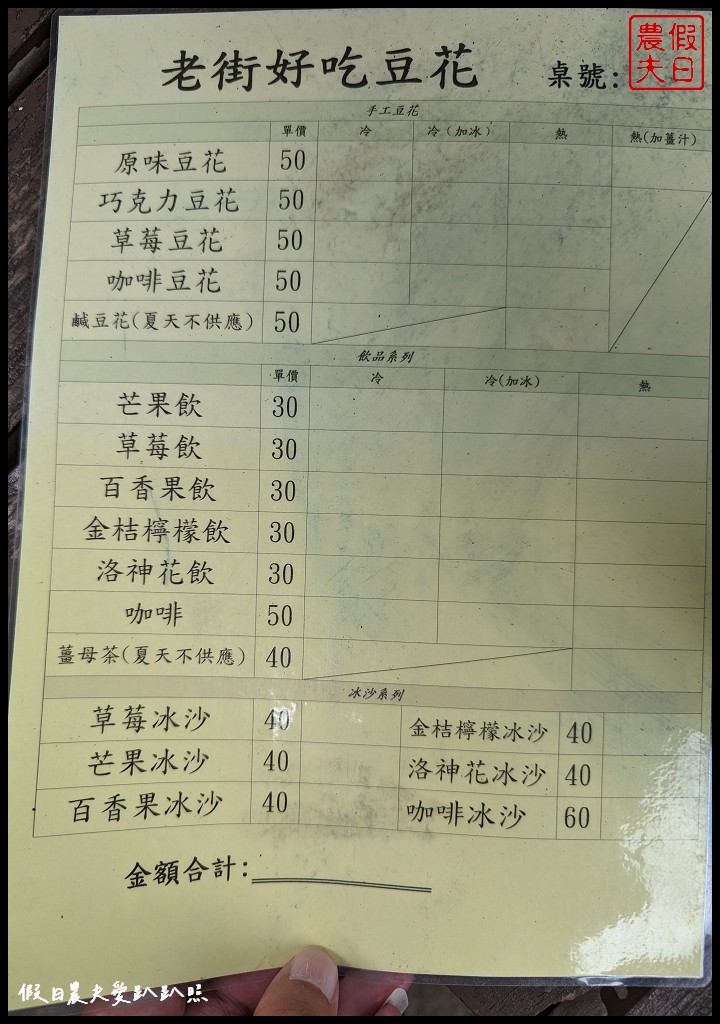 假日農夫
老街好吃豆花 桌號:
手工豆花
單價 冷 冷(加冰) 熱 熱(加薑汁)
原味豆花 50
巧克力豆花 50
草莓豆花 50
咖啡豆花 50
鹹豆花(夏天不供應) 50
飲品系列
單價 冷 冷(加冰) 熱
芒果飲 30
草莓飲 30
百香果飲 30
金桔檸檬飲 30
洛神花飲 30
咖啡 50
薑母茶(夏天不供應) 40
冰沙系列
草莓冰沙 40 金桔檸檬冰沙 40
芒果冰沙 40 洛神花冰沙 40
百香果冰沙 40 咖啡冰沙 60
金額合計:
假日農夫愛趴趴照